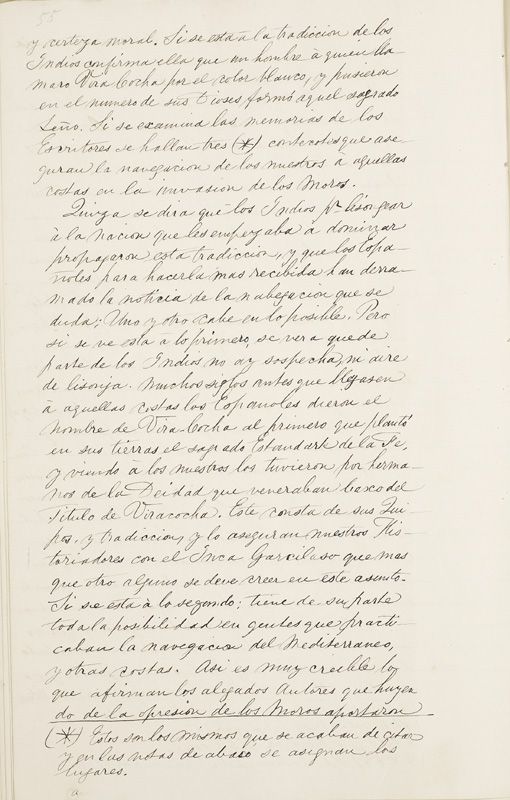 55
y certeza moral. Si se esta à la tradiccion de los
Indios confirma ella que un hombre à quien lla-
maro Vira Cocha por el color blanco, y pusieron
en el numero de sus Dioses formó aquel sagrado
Leño. Si se examina las memorias de los
Escritores se hallan tres (*) contestes que ase-
guran la navegacion de los nuestros a aquellas
costas en la invasion de los Moros.
Quiza se dira que los Indios pr. lisongear
à la nacion que les empezaba a dominar
propagaron esta tradiccion, y que los Espa-
ñoles para hacerla mas recibida han derra-
mado la noticia de la nabegacion que se
duda; Uno y otro cabe en lo posible. Pero
si se ve esta a lo primero, se vera que de
parte de los Indios no ay sospecha, ni aire
de lisonja. Muchos siglos antes que llegasen
à aquellas costas los Españoles dieron el
nombre de Vira-Cocha al primero que plantó
en sus tierras el sagrado Estandarte de la Fe,
y viendo a los nuestros los tuvieron por herma-
nos de la Deidad que veneraban baxo del
Titulo de Viracocha. Este consta de sus Qui-
pos. y tradiccion, y lo aseguran nuestros His-
toriadores con el Inca Garcilaso que mas
que otro alguno se deve creer en este asunto.
Si se esta à lo segundo; tiene de su parte
toda la posibilidad en gentes que practi-
caban la navegacion del Mediterraneo,
y otras costas. Asi es muy creible lo
que afirman los alegados Autores que huyen-
do de la opresion de los Moros aportaron
(*) Estos son los mismos que se acaban de citar
y en las notas de abaxo se asignan los
lugares.